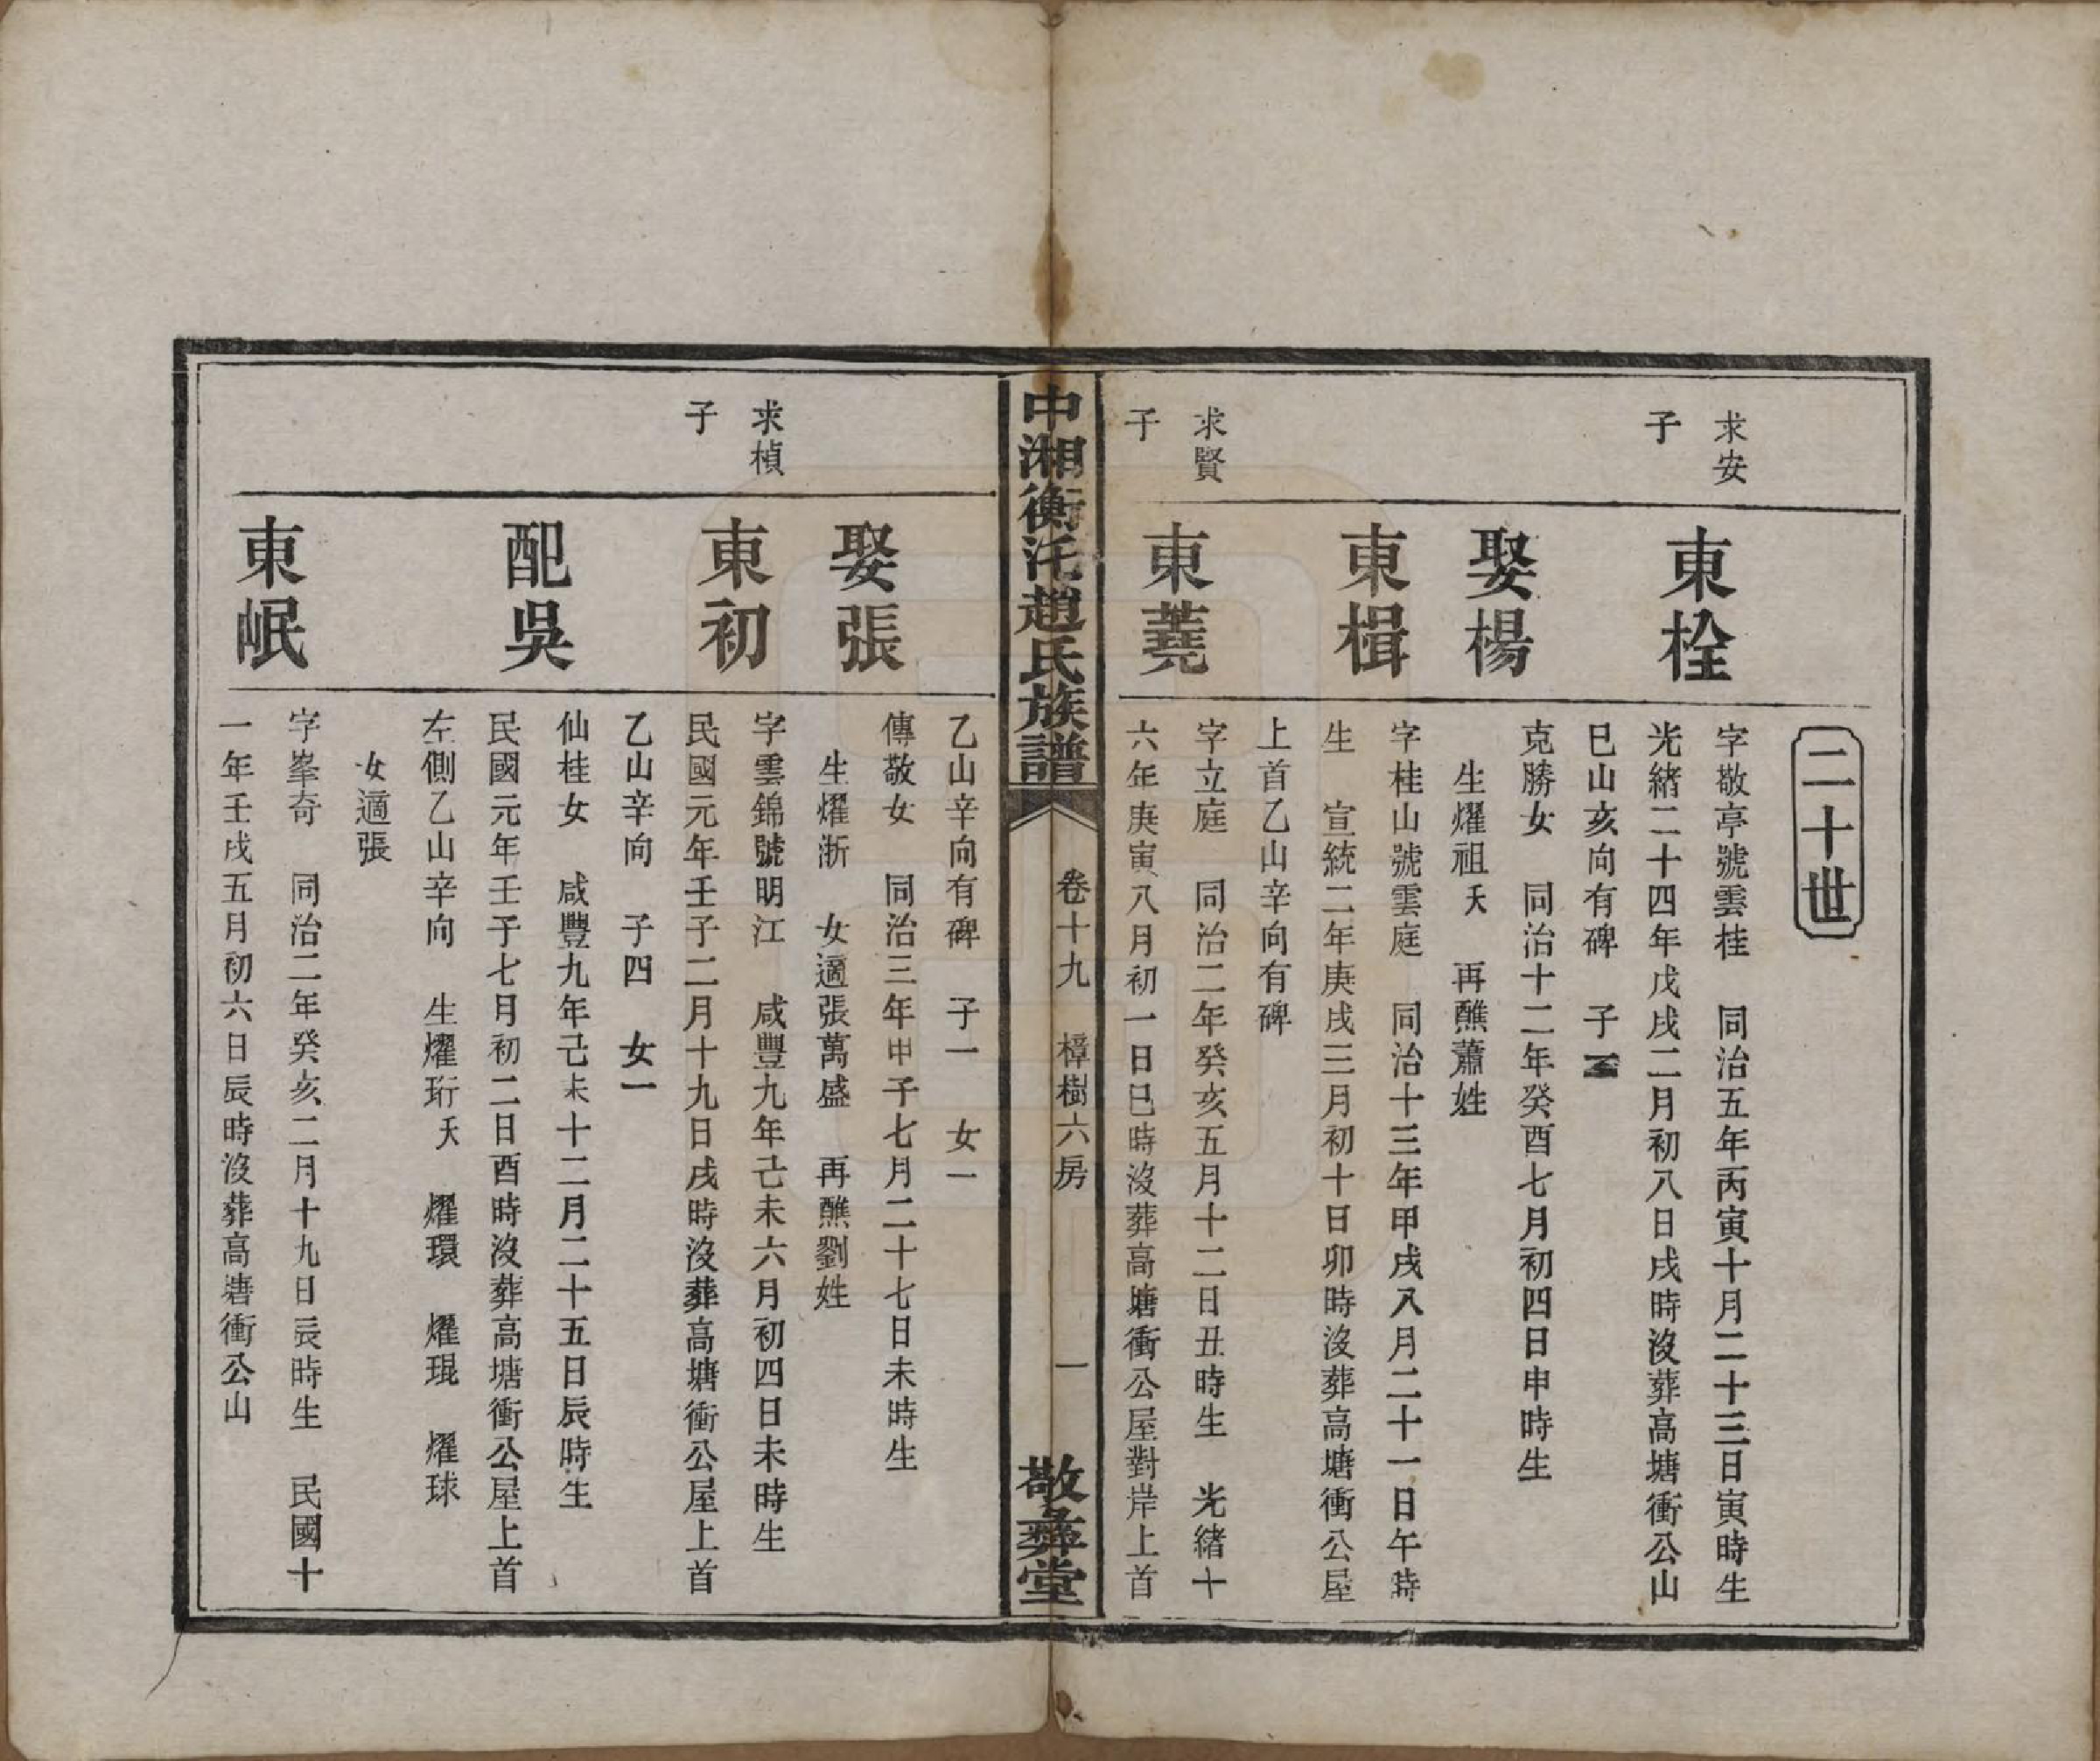 二十世
求安
子
東栓
字敬亭號雲桂　同治五年丙寅十月二十三日寅時生
光緒二十四年戊戌二月初八日戌時沒葬高塘衝公山
巳山亥向有碑　子
娶楊
克勝女　同治十二年癸酉七月初四日申時生
生燿祖夭　再醮蕭姓
東楫
字桂山號雲庭　同治十三年甲戌八月二十一日午時
生　宣統二年庚戌三月初十日卯時沒葬高塘衝公屋
上首乙山辛向有碑
求賢
子
東蕘
字立庭　同治二年癸亥五月十二日丑時生　光緒十
六年庚寅八月初一日巳時沒葬高塘衝公屋對岸上首
中湘衡汑趙氏族譜
卷十九　樟樹六房　一
敬彝堂
乙山辛向有碑　子一　女一
娶張
傳敬女　同治三年甲子七月二十七日未時生
生燿浙　女適張萬盛　再醮劉姓
求楨
子
東初
字雲錦號明江　咸豐九年己未六月初四日未時生
民國元年壬子二月十九日戌時沒葬高塘衝公屋上首
乙山辛向　子四　女一
配吳
仙桂女　咸豐九年己未十二月二十五日辰時生
民國元年壬子七月初二日酉時沒葬高塘衝公屋上首
左側乙山辛向　生燿珩夭　燿環　燿琨　燿球
女適張
東岷
字峯奇　同治二年癸亥二月十九日辰時生　民國十
一年壬戌五月初六日辰時沒葬高塘衝公山